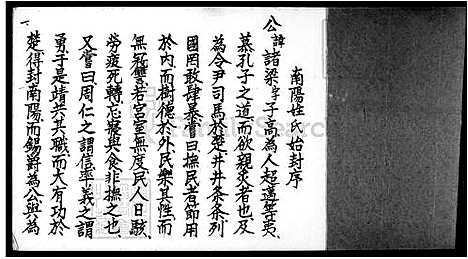 南陽姓氏始封序
公諱諸梁字子高為人超邁等夷
慕孔子之道而欲親炙者也及
為令尹司馬於楚井井条条列
國罔敢肆暴嘗曰撫民者節用
於内而樹德於外民樂其性而
無寇讐若宮室無度民人日駭
勞疲死轉忘寢與食非撫之也
又嘗曰周仁之謂信率義之謂
勇子是靖共其職而大有功於
楚得封南陽而錫爵為公與為